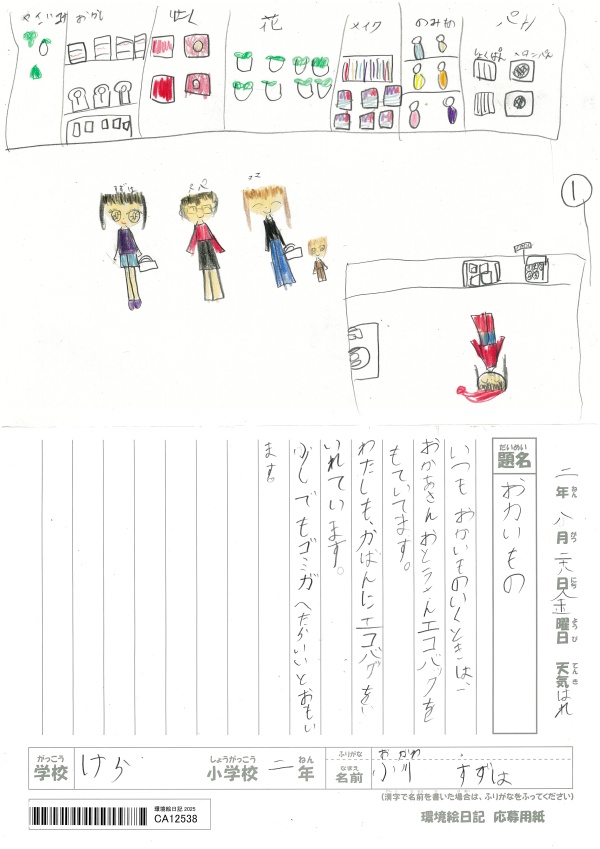 おかし
花
メイク
のみもの
パン
しょくぱん
メロンパン
すずは
パパ
ママ
1
二年 八月 日 金曜日 天気 はれ
ねん がつ にち ようび てんき
だいめい
題名
おかいもの
いつもおかいものいくときは、
おかあさんおとうさんエコバッグを
もていてます。
わたしも、かばんにエコバグを
いれています。
少しでもゴミガへたらいいとおもい
ます。
がっこう
学校
けら
しょうがっこう
小学校
二
ねん
年
ふりがな
おがわ
なまえ
名前
小川 すずは
(漢字で名前を書いた場合は、ふりがなをふってください)
環境絵日記 2025
CA12538
環境絵日記 応募用紙